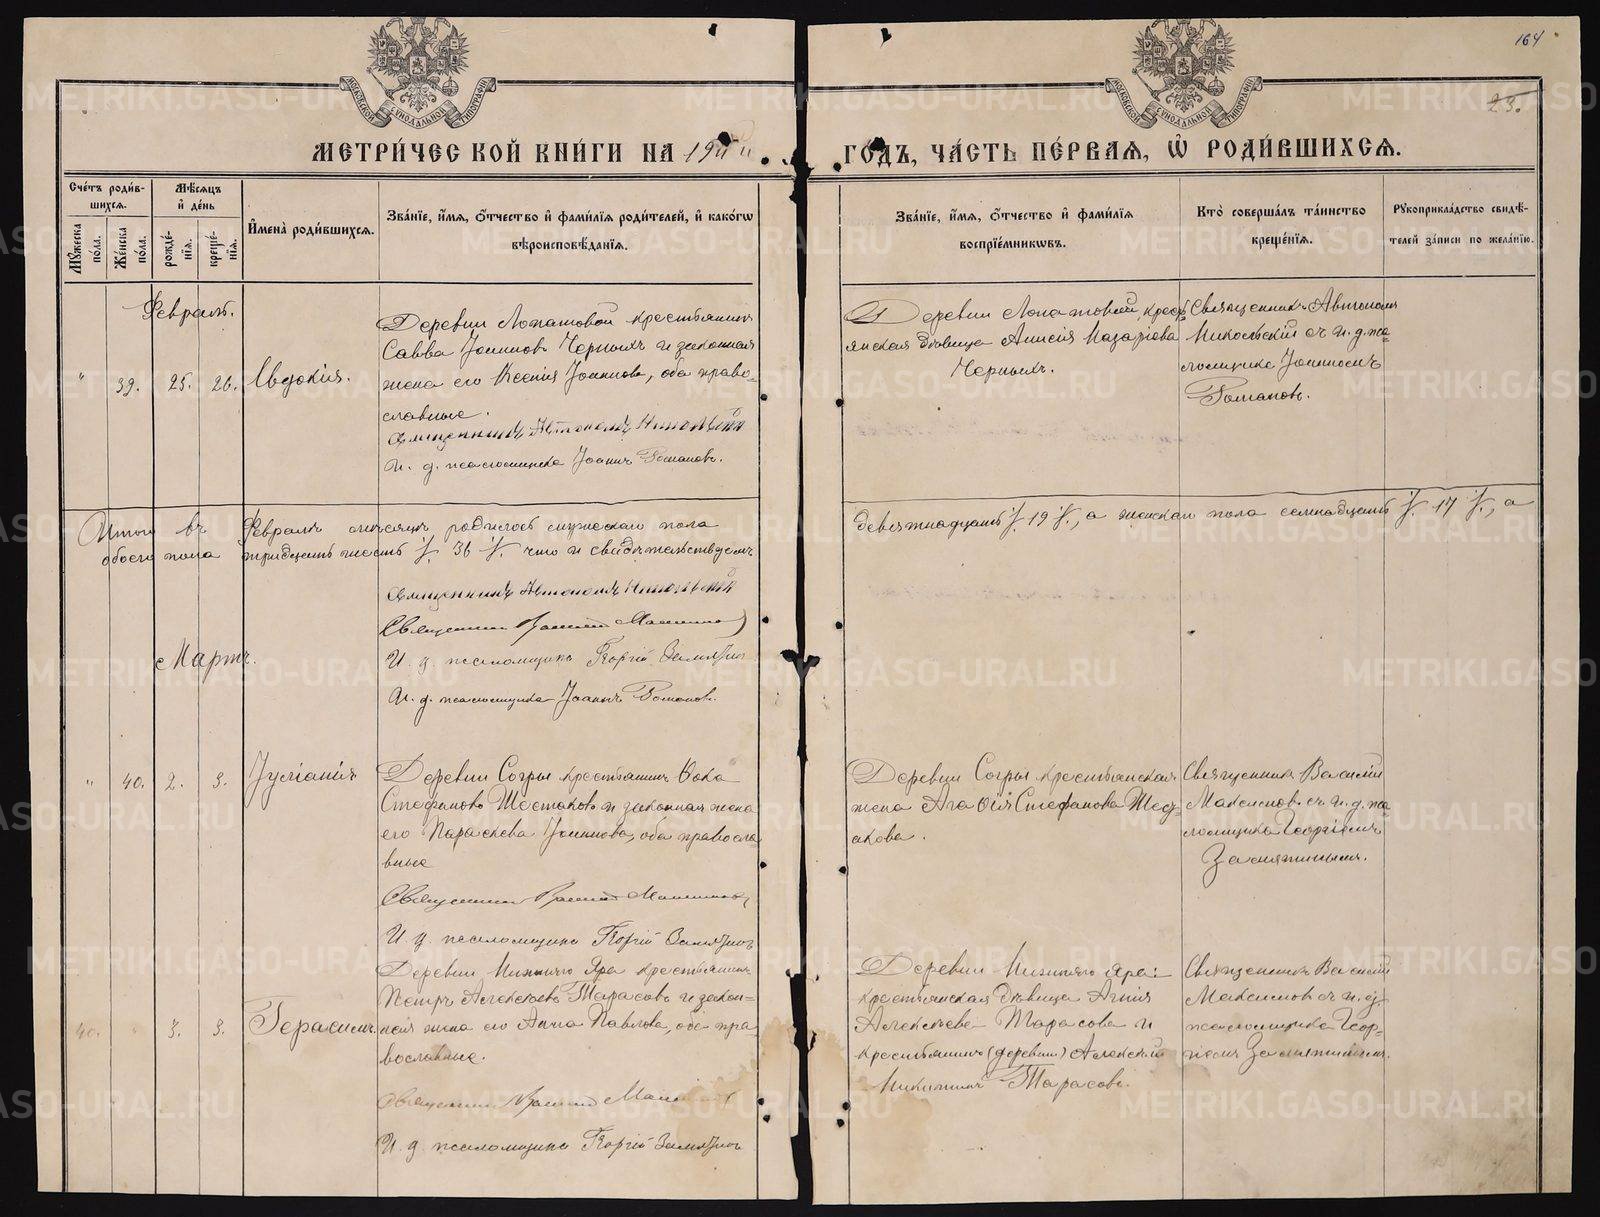 164
23.
МОСКОВСКОЙ СУНОДАЛЬНОЙ ТИПОГРАФІИ
МОСКОВСКОЙ СУНОДАЛЬНОЙ ТИПОГРАФІИ
МЕТРИ́ЧЕСКОЙ КНИ́ГИ НА 19
ГО́ДЪ, ЧА́СТЬ ПЕ́РВАѦ, Ѡ҆ РОДИ́ВШИХСѦ.
Сче́тъ роди́в-
шихсѧ.
Мѣ́сѧцъ
и҆ де́нь
Мꙋ́жеска по́ла.
Же́нска по́ла.
рожде́-
нїѧ.
креще́-
нїѧ.
И҆мена̀ роди́вшихсѧ.
Зва́нїе, и҆́мѧ, ѻ҆́тчество и҆ фами́лїѧ роди́телей, и҆ како́гѡ
вѣроисповѣ́данїѧ.
Зва́нїе, и҆́мѧ, ѻ҆́тчество и҆ фами́лїѧ
воспрїе́мникѡвъ.
Кто̀ соверша́лъ та́инство
креще́нїѧ.
Рꙋкоприкла́дство свидѣ́-
телей за́писи по жела́нїю.
Февраль.
" 39. 25. 26. Евдокія.
Деревни Лопатовой крестьянинъ
Савва Іоанновъ Черныхъ и законная
жена его Ксенія Іоаннова, оба право-
славные.
Священникъ Автономъ Никольскій
И. д. псаломщика Іоаннъ Романовъ.
Деревни Лопатовой, крестьянская дѣвица Анисія Назарова
Черныхъ.
Священникъ Автономъ
Никольскій съ и. д. пса-
ломщика Іоанномъ
Романовъ.
Итого въ Февралѣ мѣсяцѣ родилось мужескаго пола
девятнадцать 19, а женскаго пола семнадцать 17, а
обоего пола тридцать шесть 36 что и свидѣтельствуемъ
Священникъ Автономъ Никольскій
Священникъ Василій Максимовъ
И. д. псаломщика Георгій Замятинъ
И. д. псаломщика Іоаннъ Романовъ.
Мартъ.
" 40. 2. 3. Іуліанія
Деревни Согры крестьянинъ Ѳока
Стефановъ Шестаковъ и законная жена
его Параскева Іоаннова, оба правосла-
вные
Священникъ Василій Максимовъ
И. д. псаломщика Георгій Замятинъ
Деревни Согры крестьянская
жена Агаѳія Стефанова Шест-
акова.
Священникъ Василій
Максимовъ съ и. д. пса-
ломщика Георгіемъ
Замятинымъ.
40. " 3. 3. Герасимъ
Деревни Нижняго Яра крестьянинъ
Петръ Алексѣевъ Тарасовъ и закон-
ная жена его Анна Павлова, оба пра-
вославные.
Священникъ Василій Максимовъ
И. д. псаломщика Георгій Замятинъ
Деревни Нижняго Яра:
крестьянская дѣвица Агнія
Алексѣева Тарасова и
крестьянинъ (деревни) Алексѣй
Никитинъ Тарасовъ.
Священникъ Василій
Максимовъ съ и. д.
псаломщика Геор-
гіемъ Замятинымъ.
METRIKI.GASO-URAL.RU